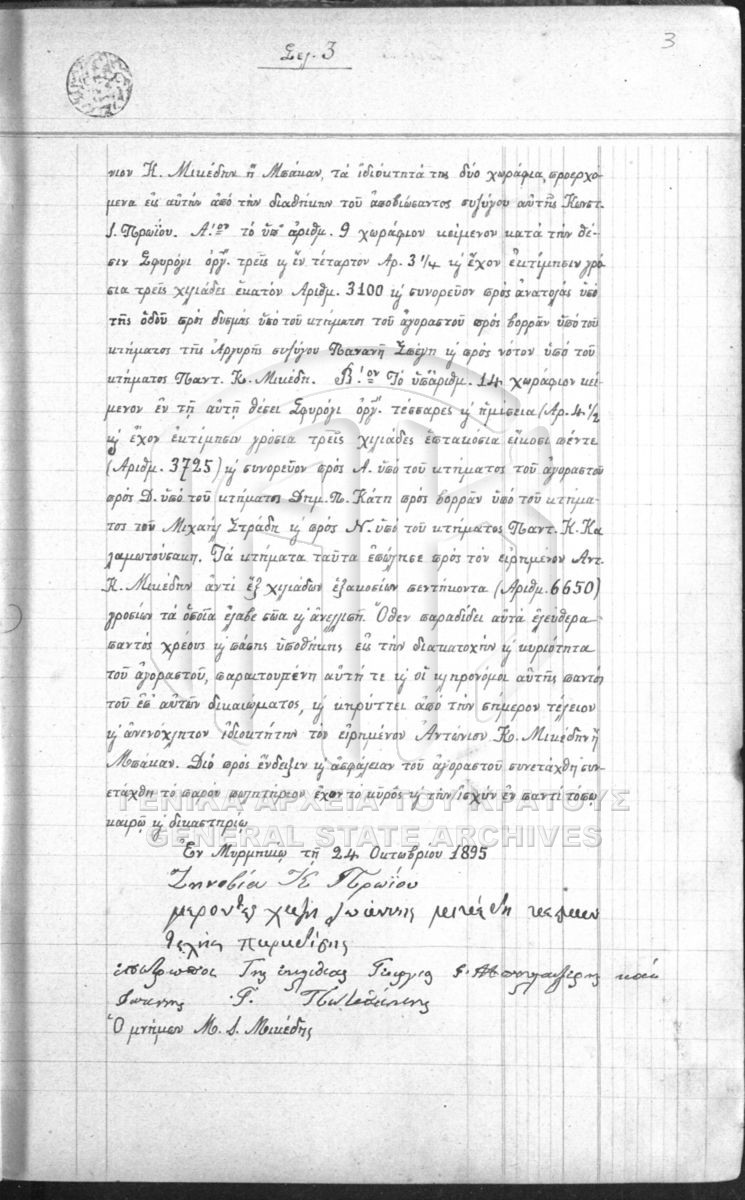 Σελ. 3
3
νιον Κ. Μικέδην ἢ Μπάκαν, τὰ ἰδιόκτητά της δύο χωράφια, προερχό-
μενα εἰς αὐτὴν ἀπὸ τὴν διαθήκην τοῦ ἀποβιώσαντος συζύγου αὐτῆς Κωνστ.
Ι. Πρωΐου. Α.ον τὸ ὑπ' ἀριθμ. 9 χωράφιον κείμενον κατὰ τὴν θέ-
σιν Σφυρόγι ὀργ. τρεῖς κ ἓν τέταρτον Αρ. 3 1/4 κ ἔχον ἐκτίμησιν γρό-
σια τρεῖς χιλιάδες ἑκατόν Αριθμ. 3100 κ συνορεῦον πρὸς ἀνατολὰς ὑπὸ
τῆς ὁδοῦ πρὸς δυσμὰς ὑπὸ τοῦ κτήματος τοῦ ἀγοραστοῦ πρὸς βορρᾶν ὑπὸ τοῦ
κτήματος τῆς Ἀργυρῆς συζύγου Παναγῆ κ πρὸς νότον ὑπὸ τοῦ
κτήματος Παντ. Κ. Μικέδη. Β.ον Τὸ ὑπ' ἀριθμ. 14 χωράφιον κεί-
μενον ἐν τῇ αὐτῇ θέσει Σφυρόγι ὀργ. τέσσαρες κ ἡμίσεια (Αρ. 4 1/2
κ ἔχον ἐκτίμησιν γρόσια τρεῖς χιλιάδες ἑπτακόσια εἴκοσι πέντε
(Αριθμ. 3725) κ συνορεῦον πρὸς Α. ὑπὸ τοῦ κτήματος τοῦ ἀγοραστοῦ
πρὸς Δ. ὑπὸ τοῦ κτήματος Δημ. Π. Κάτη πρὸς βορρᾶν ὑπὸ τοῦ κτήμα-
τος τοῦ Μιχαὴλ Στράδη κ πρὸς Ν. ὑπὸ τοῦ κτήματος Παντ. Κ. Κα
λαμωτούσακη. Τὰ κτήματα ταῦτα ἐπώλησε πρὸς τὸν εἰρημένον Αντ.
Κ. Μικέδην ἀντὶ ἓξ χιλιάδων ἑξακοσίων πεντήκοντα (Αριθμ. 6650)
γροσίων τὰ ὁποῖα ἔλαβε σῶα κ ἀνελλιπῆ. Ὅθεν παραδίδει αὐτὰ ἐλεύθερα
παντὸς χρέους κ πάσης ὑποθήκης εἰς τὴν διακατοχὴν κ κυριότητα
τοῦ ἀγοραστοῦ, παραιτουμένη αὐτή τε κ οἱ κληρονόμοι αὐτῆς παντὸς
τοῦ ἐπ' αὐτῶν δικαιώματος, κ κηρύττει ἀπὸ τὴν σήμερον τέλειον
κ ἀνενόχλητον ἰδιοκτήτην τὸν εἰρημένον Ἀντώνιον Κ. Μικέδην ἢ
Μπάκαν. Διὸ πρὸς ἔνδειξιν κ ἀσφάλειαν τοῦ ἀγοραστοῦ συνετάχθη συν-
ετάχθη τὸ παρὸν πωλητήριον ἔχον τὸ κῦρος κ τὴν ἰσχὺν ἐν παντὶ τόπῳ
καιρῷ κ δικαστηρίῳ
ΓΕΝΙΚΑ ΑΡΧΕΙΑ ΤΟΥ ΚΡΑΤΟΥΣ
GENERAL STATE ARCHIVES
Ἐν Μυρμηκίῳ τῇ 24 Οκτωβρίου 1895
Ζηνοβία Κ. Πρωΐου
χατζη Ιωάννης
Γεώργιος καὶ
Ιωαννης Γ.
Ὁ μνήμων Μ. Ι. Μικέδης